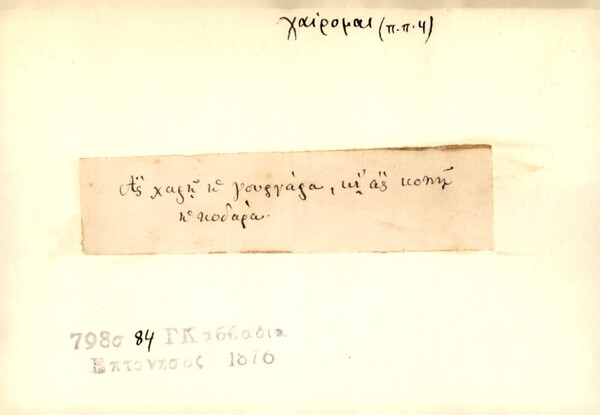 χαίρομαι (π.π.4)
Ἂς χαρῇ κὴ γουργάρα, κῂ ἂς κοπῇ
κὴ ποδάρα.
798σ 84 Γ Κασσαδια
Επτονησος 1876